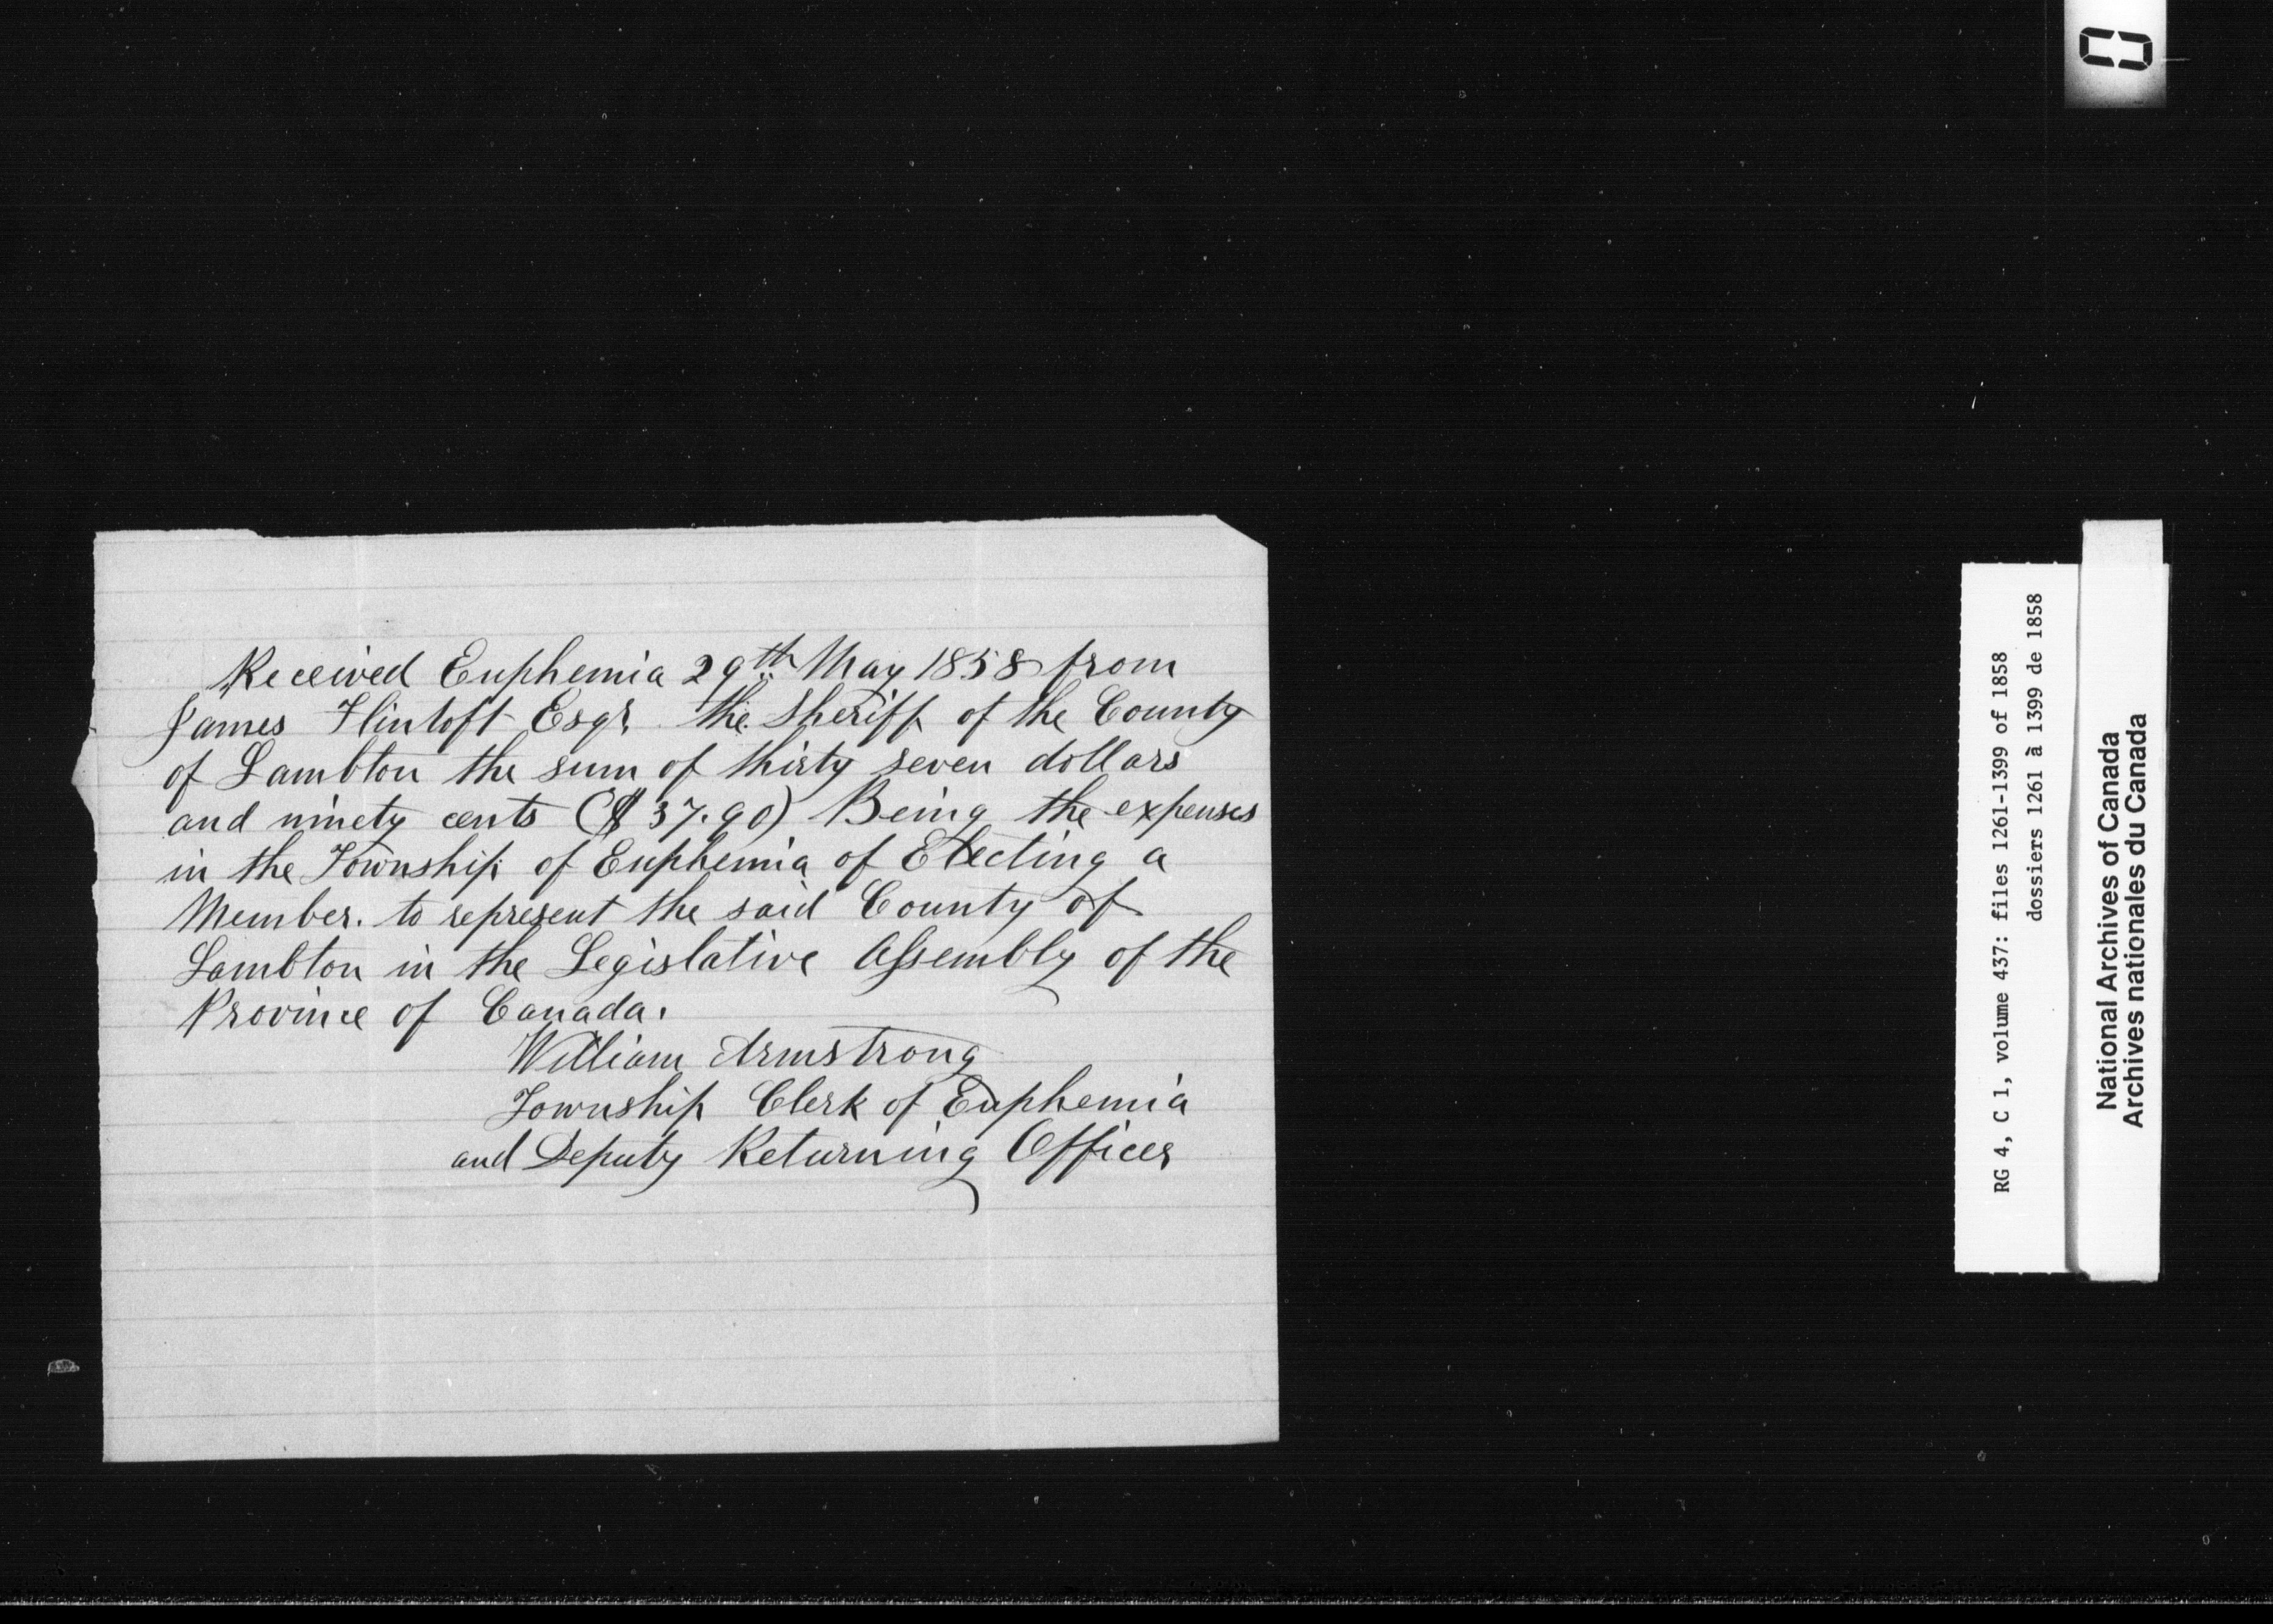 Received Euphemia 29th May 1858 from
James Flintoft Esqr. the Sheriff of the County
of Lambton the sum of thirty seven dollars
and ninety cents ($37.90) Being the expenses
in the Township of Euphemia of Electing a
Member. to represent the said County of
Lambton in the Legislative Assembly of the
Province of Canada.
William Armstrong
Township Clerk of Euphemia
and Deputy Returning Officer
RG 4, C 1, volume 437: files 1261-1399 of 1858
dossiers 1261 à 1399 de 1858
National Archives of Canada
Archives nationales du Canada
0